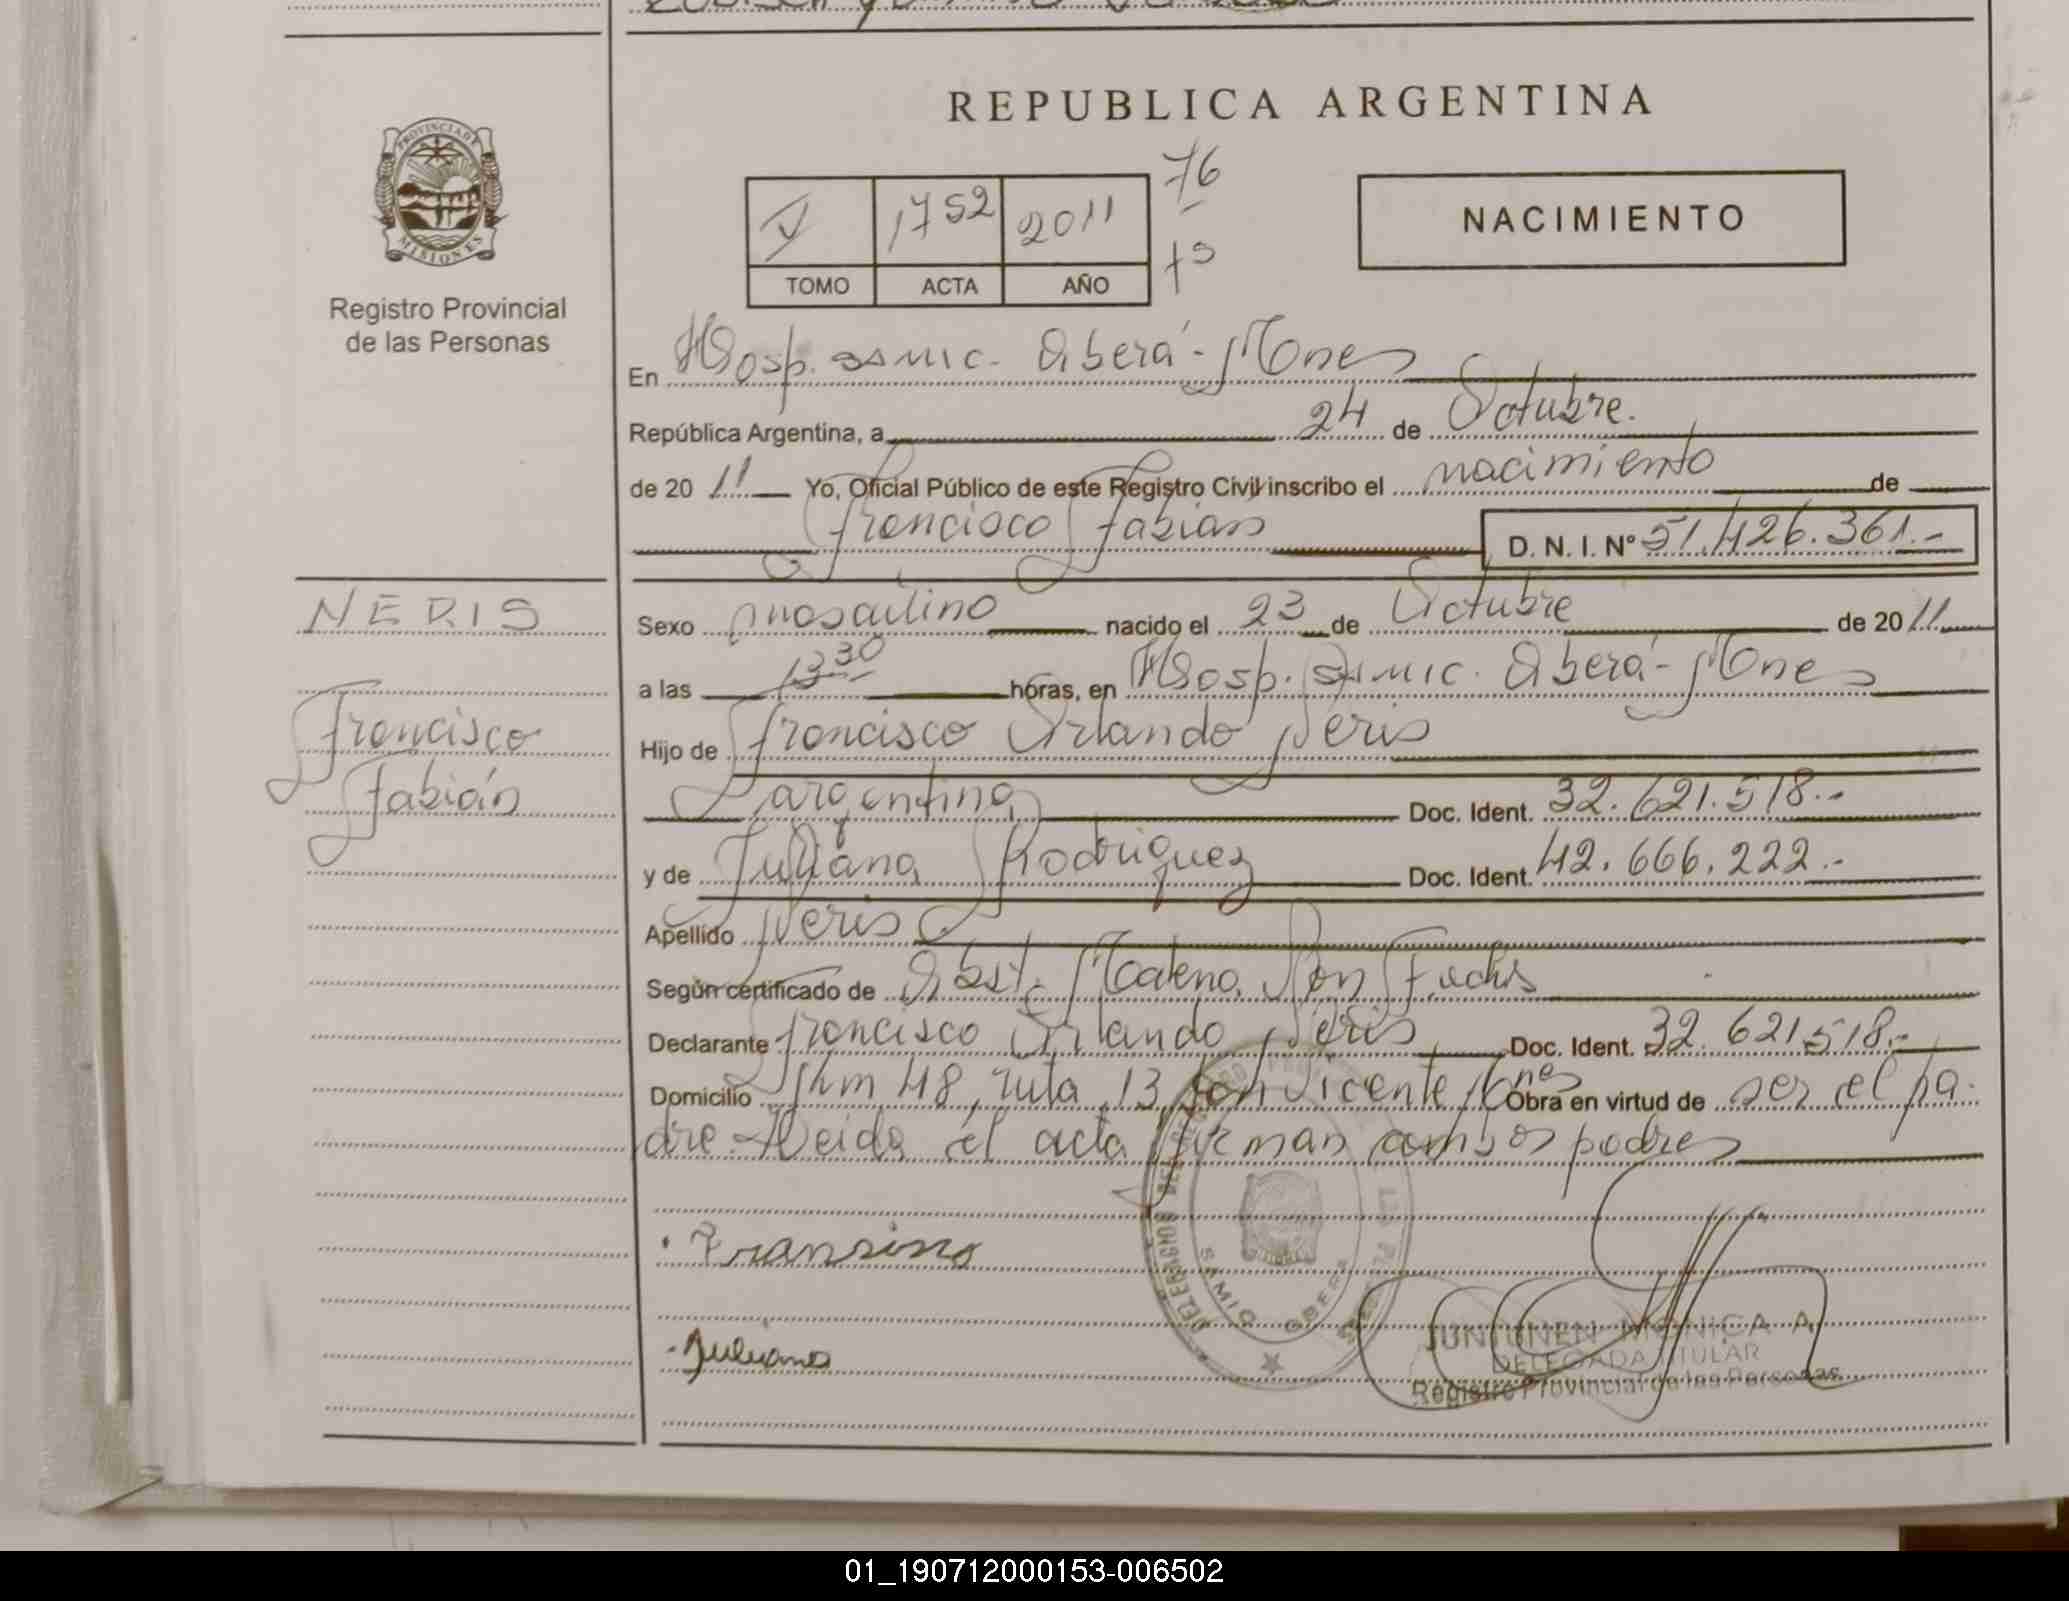 REPUBLICA ARGENTINA
PROVINCIA D
MISIONES
Registro Provincial
de las Personas
V 1752 2011
TOMO ACTA AÑO
76
NACIMIENTO
En Hosp. SAMIC. Oberá - Mones
República Argentina, a 24 de Octubre.
de 20 11 Yo, Oficial Público de este Registro Civil inscribo el nacimiento de
Francisco Fabian D. N. I. Nº 51.426.361.-
NERIS
Francisco
Fabián
Sexo masculino nacido el 23 de Octubre de 20 11
a las 13 30 horas, en Hosp. SAMIC. Oberá - Mones
Hijo de Francisco Orlando Neris
argentina Doc. Ident. 32.621.518.-
y de Juliana Rodriguez Doc. Ident. 42.666.222.-
Apellido Neris
Según certificado de Obst. Fuchs
Declarante Francisco Orlando Neris Doc. Ident. 32.621.518.-
Domicilio Km 48, ruta 13, San Vicente Mnes Obra en virtud de ser el pa-
dre - Leida el acta firman ambos padres
Juliana
SAMIC OBERA
JUNTUNEN MONICA A.
DELEGADA TITULAR
Registro Provincial de las Personas
01_190712000153-006502